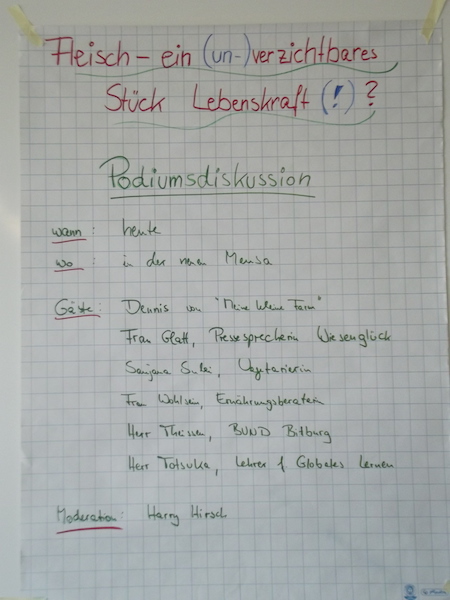 Fleisch – ein (un-)verzichtbares
Stück Lebenskraft (!)?
Podiumsdiskussion
wann: heute
wo: in der neuen Mensa
Gäste: Dennis von "Meine kleine Farm"
Frau Glatt, Pressesprecherin Wiesenglück
Sanjana, Vegetarierin
Frau Wohlsein, Ernährungsberaterin
Herr Theissen, BUND Bitburg
Herr Totsuka, Lehrer f Globales Lernen
Moderation: Harry Hirsch